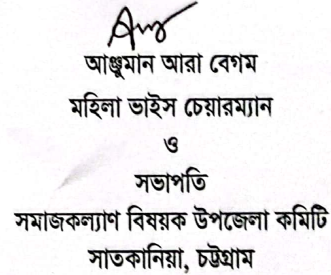 আঞ্জুমান আরা বেগম
মহিলা ভাইস চেয়ারম্যান
ও
সভাপতি
সমাজকল্যাণ বিষয়ক উপজেলা কমিটি
সাতকানিয়া, চট্টগ্রাম